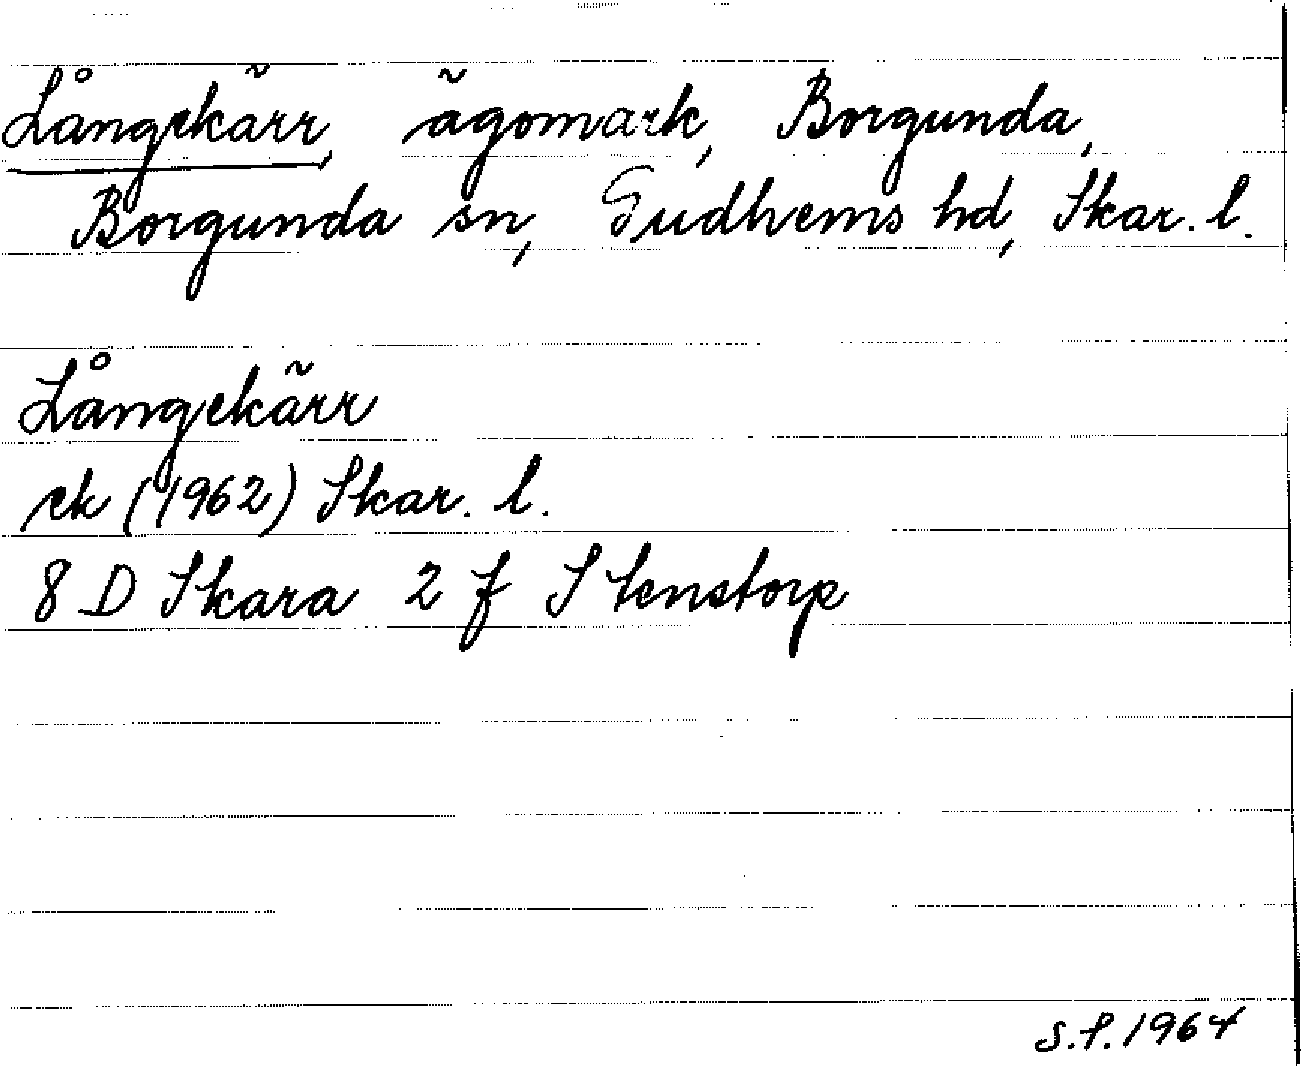 Långekärr, ägomark, Borgunda,
Borgunda sn, Gudhems hd, Skar. l.
Långekärr
ek (1962) Skar. l.
8 D Skara 2 f Stenstorp
S.P. 1964